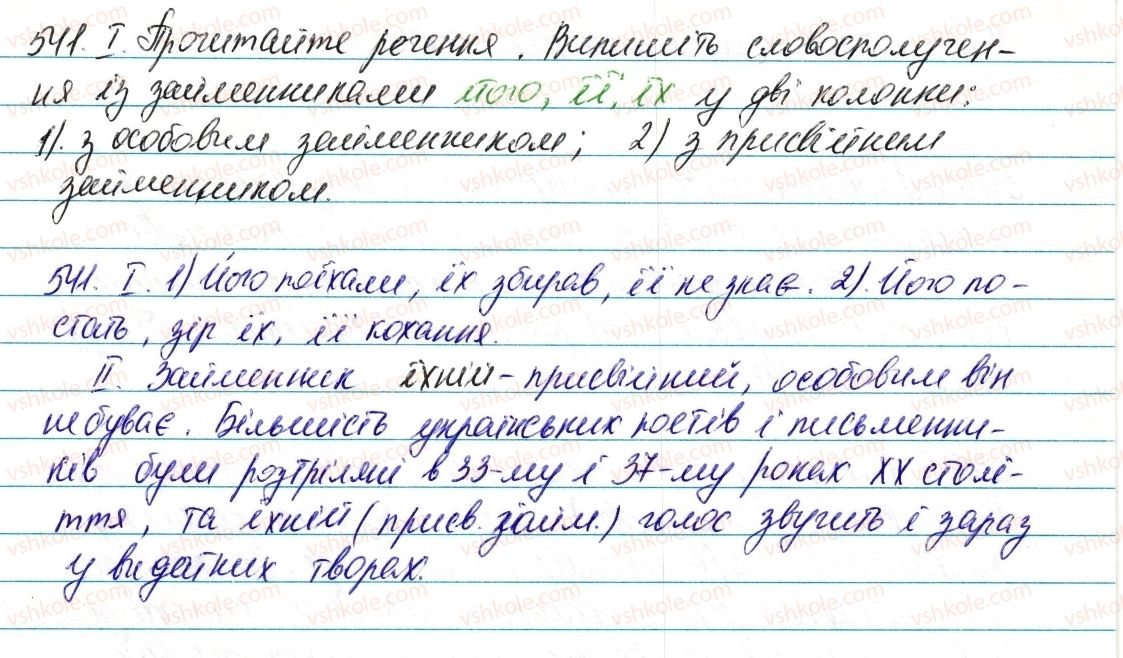 541. І. Прочитайте речення. Випишіть словосполучен-
ня із займенниками його, її, їх у дві колонки:
1). з особовим займенником; 2) з присвійним
займенником.
541. І. 1) Його поїхали, їх збирав, її не знає. 2) Його по-
стать, зір їх, її кохання.
ІІ. Займенник їхній - присвійний, особовим він
не буває. Більшість українських поетів і письменни-
ків були розтріляні в 33-му і 37-му роках ХХ столі-
ття, та їхній (присв. займ.) голос звучить і зараз
у видатних творах.